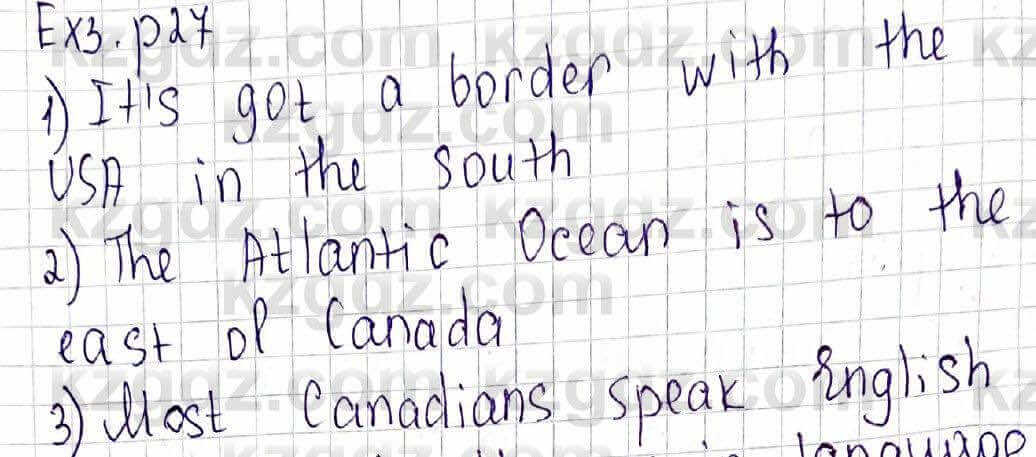 Ex3. p27
1) It's got a border with the
USA in the south
2) The Atlantic Ocean is to the
east of Canada
3) Most Canadians speak English
language